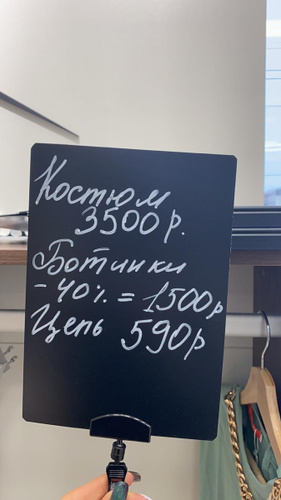 Костюм
3500 р.
Ботинки
-40% = 1500р
Цепь 590р